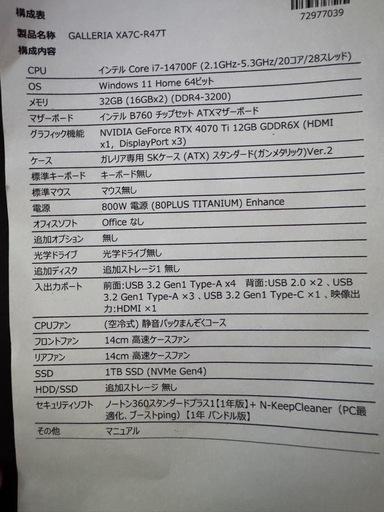 構成表
72977039
製品名称 GALLERIA XA7C-R47T
構成内容
CPU インテル Core i7-14700F (2.1GHz-5.3GHz/20コア/28スレッド)
OS Windows 11 Home 64ビット
メモリ 32GB (16GBx2) (DDR4-3200)
マザーボード インテル B760 チップセット ATXマザーボード
グラフィック機能 NVIDIA GeForce RTX 4070 Ti 12GB GDDR6X (HDMI
x1, DisplayPort x3)
ケース ガレリア専用 SKケース (ATX) スタンダード(ガンメタリック)Ver.2
標準キーボード キーボード無し
標準マウス マウス無し
電源 800W 電源 (80PLUS TITANIUM) Enhance
オフィスソフト Office なし
追加オプション 無し
光学ドライブ 光学ドライブ無し
追加ディスク 追加ストレージ1 無し
入出力ポート 前面:USB 3.2 Gen1 Type-A x4 背面:USB 2.0 ×2 、USB
3.2 Gen1 Type-A ×3 、USB 3.2 Gen1 Type-C ×1 、映像出
力:HDMI ×1
CPUファン (空冷式) 静音パックまんぞくコース
フロントファン 14cm 高速ケースファン
リアファン 14cm 高速ケースファン
SSD 1TB SSD (NVMe Gen4)
HDD/SSD 追加ストレージ 無し
セキュリティソフト ノートン360スタンダードプラス1【1年版】+ N-KeepCleaner（PC最
適化、ブーストping）【1年 バンドル版】
その他 マニュアル